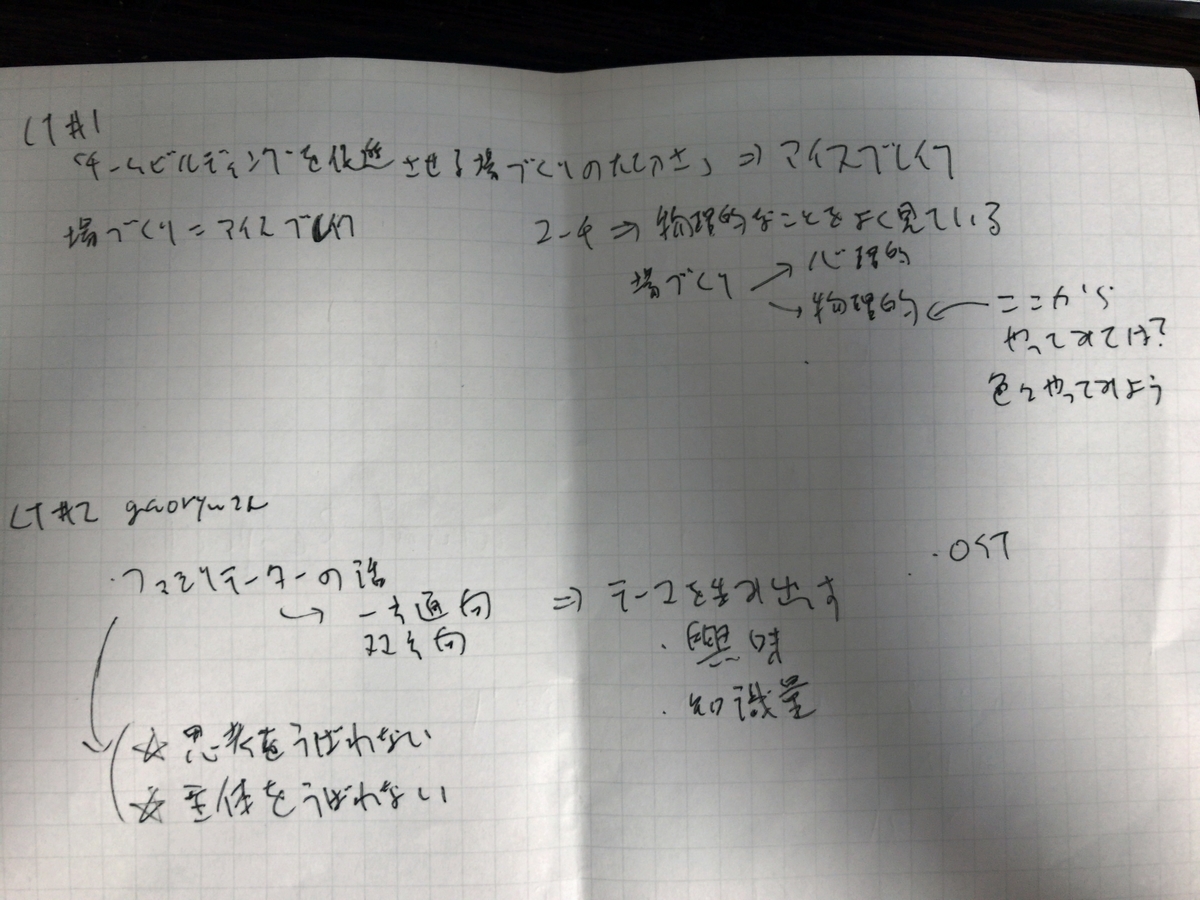 LT #1
「チームビルディングを促進させる場づくりの大切さ」 ⇒ アイスブレイク
場づくり = アイスブレイク
コーチ ⇒ 物理的なことをよく見ている
場づくり → 心理的
→ 物理的 ← ここから
やってみては?
色々やってみよう
LT #2 gaoryuさん
・OST
・ファシリテーターの話
→ 一方通向
双方向
⇒ テーマを生み出す
・興味
・知識量
☆ 思考をうばわない
☆ 主体をうばわない